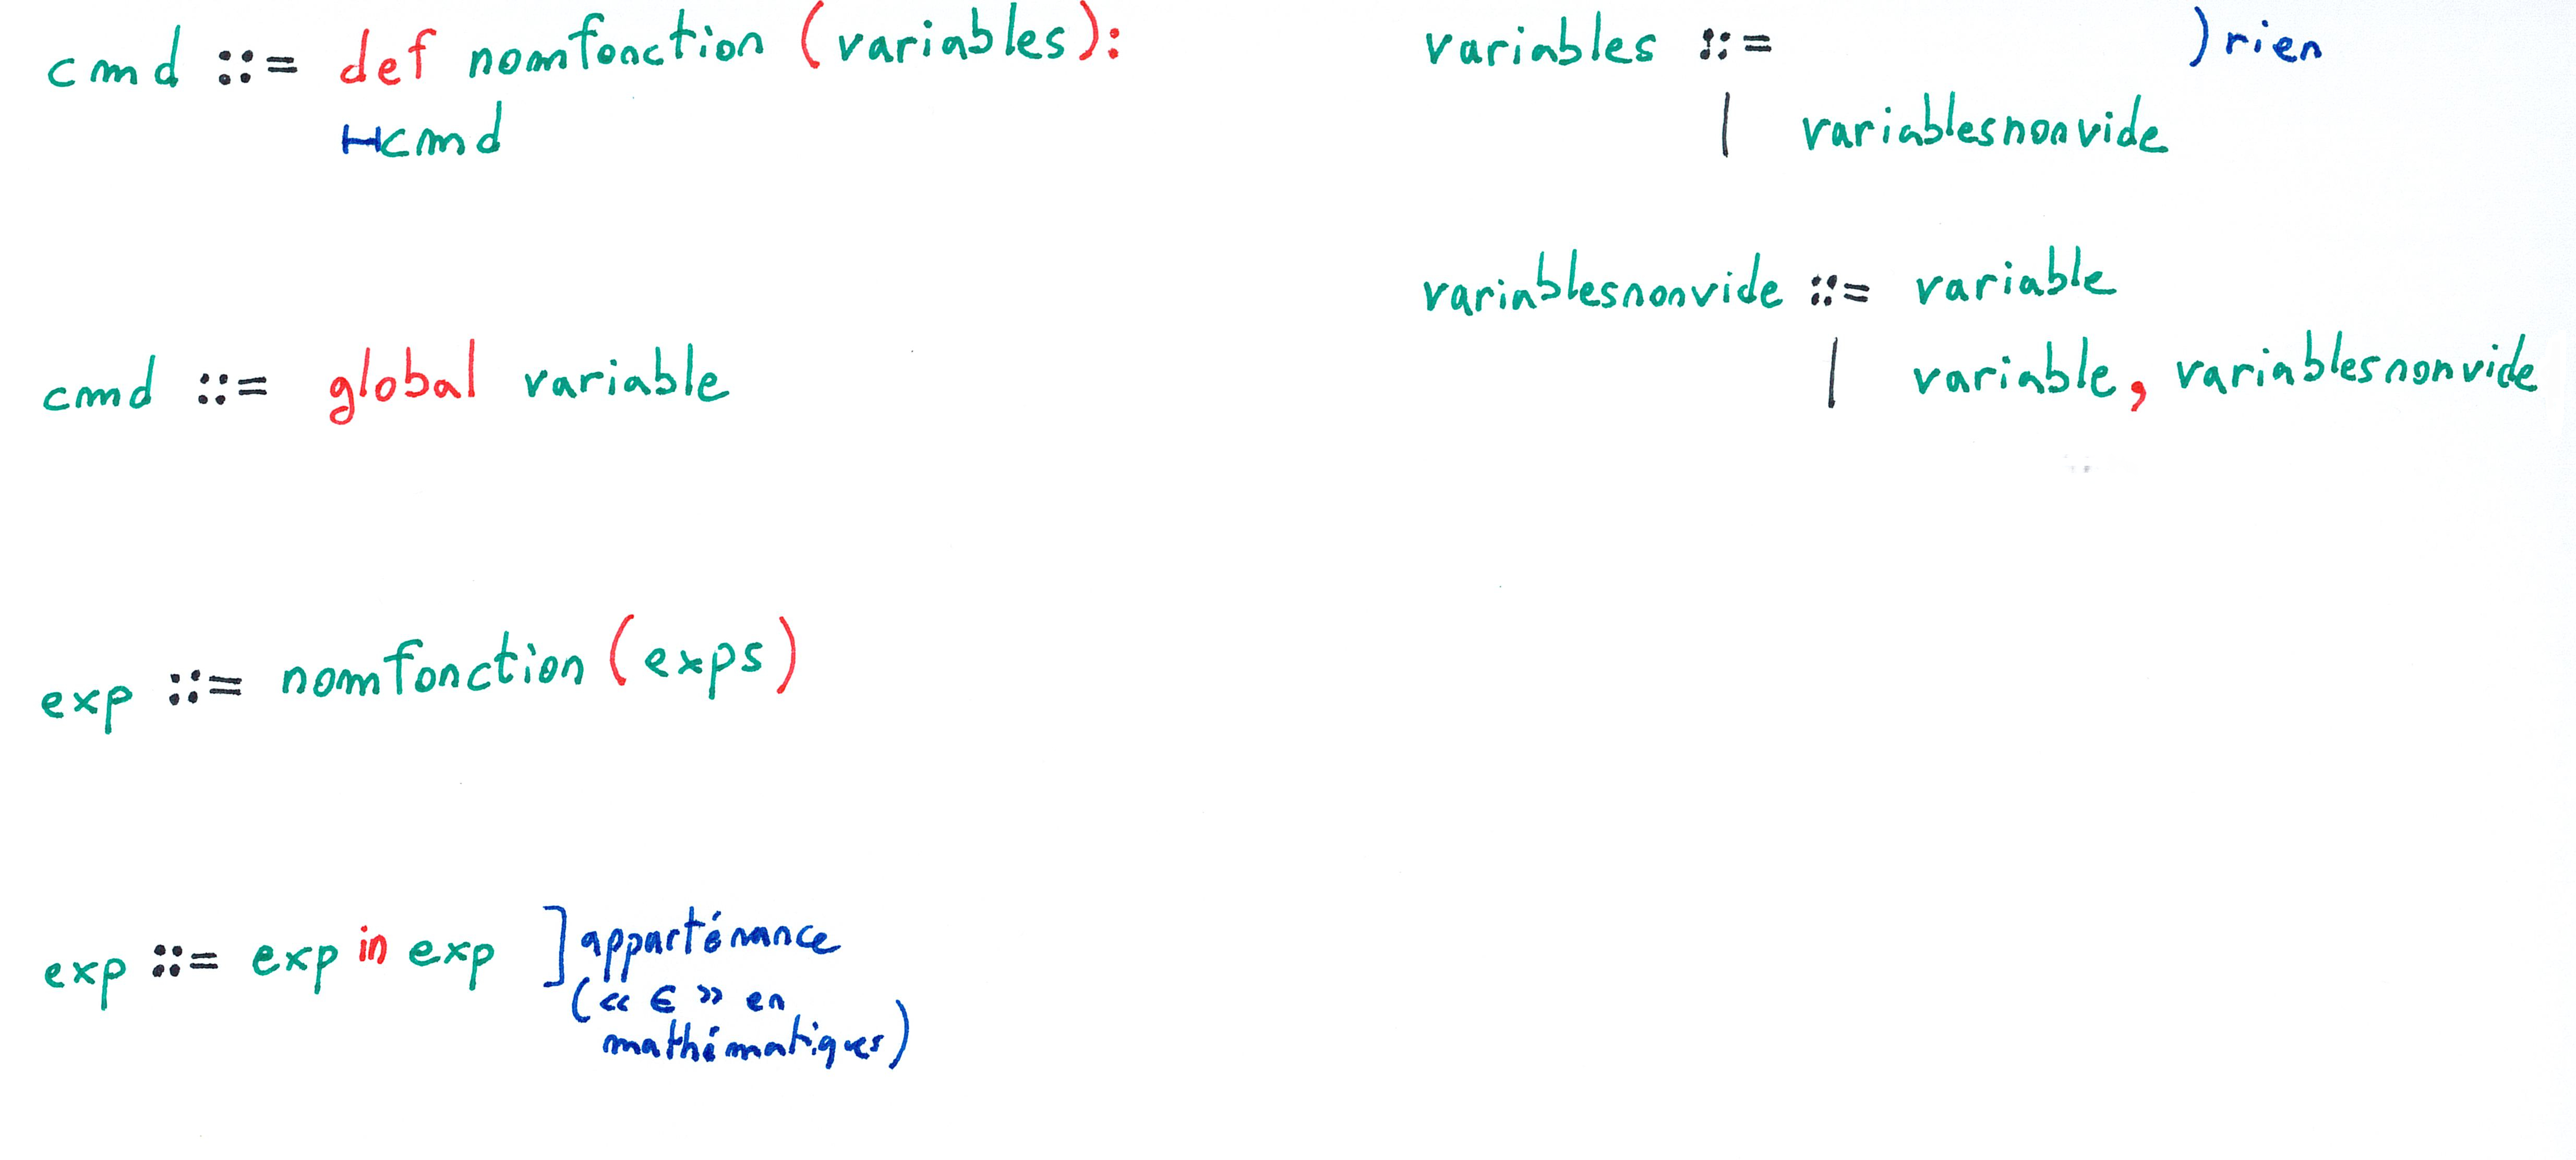 cmd ::= def nomfonction (variables):
⊢cmd
cmd ::= global variable
exp ::= nomfonction (exps)
exp ::= exp in exp ] apparténance
(« ∈ » en
mathématiques)
variables ::= ) rien
| variablesnonvide
variablesnonvide ::= variable
| variable, variablesnonvide